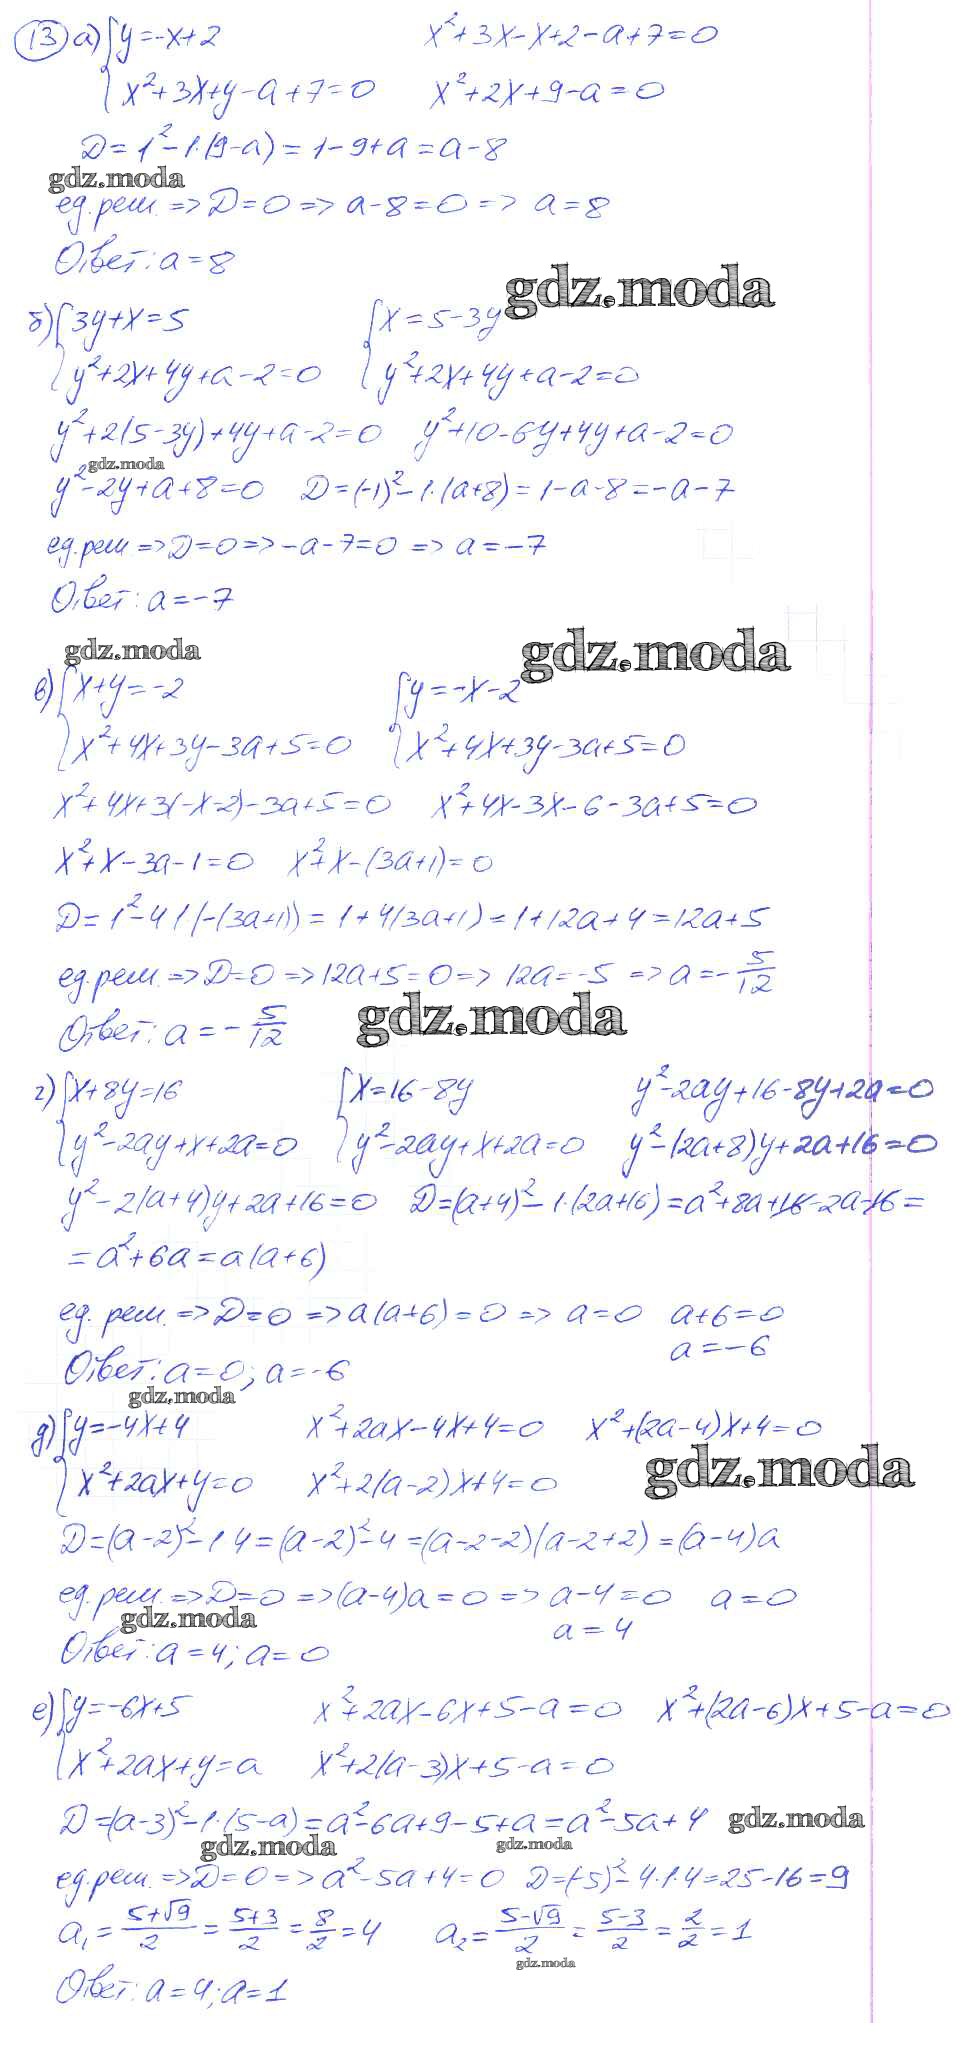 13 а) { y=-x+2    x²+3x-x+2-a+7=0
{ x²+3x+y-a+7=0    x²+2x+9-a=0
D=1²-1·(9-a)=1-9+a=a-8
gdz.moda
ед.реш. => D=0 => a-8=0 => a=8
Ответ: a=8
gdz.moda
б) { 3y+x=5    { x=5-3y
{ y²+2x+4y+a-2=0    { y²+2x+4y+a-2=0
y²+2(5-3y)+4y+a-2=0    y²+10-6y+4y+a-2=0
gdz.moda
y²-2y+a+8=0    D=(-1)²-1·(a+8)=1-a-8=-a-7
ед.реш => D=0 => -a-7=0 => a=-7
Ответ: a=-7
gdz.moda    gdz.moda
в) { x+y=-2    { y=-x-2
{ x²+4x+3y-3a+5=0    { x²+4x+3y-3a+5=0
x²+4x+3(-x-2)-3a+5=0    x²+4x-3x-6-3a+5=0
x²+x-3a-1=0    x²+x-(3a+1)=0
D=1²-4·1·(-(3a+1))=1+4(3a+1)=1+12a+4=12a+5
ед.реш. => D=0 => 12a+5=0 => 12a=-5 => a=-5/12
Ответ: a=-5/12
gdz.moda
г) { x+8y=16    { x=16-8y    y²-2ay+16-8y+2a=0
{ y²-2ay+x+2a=0    { y²-2ay+x+2a=0    y²-(2a+8)y+2a+16=0
y²-2(a+4)y+2a+16=0    D=(a+4)²-1·(2a+16)=a²+8a+16-2a-16=
=a²+6a=a(a+6)
ед. реш. => D=0 => a(a+6)=0 => a=0    a+6=0
a=-6
Ответ: a=0; a=-6
gdz.moda
д) { y=-4x+4    x²+2ax-4x+4=0    x²+(2a-4)x+4=0
{ x²+2ax+y=0    x²+2(a-2)x+4=0
gdz.moda
D=(a-2)²-1·4=(a-2)²-4=(a-2-2)(a-2+2)=(a-4)a
ед.реш. => D=0 => (a-4)a=0 => a-4=0    a=0
a=4
gdz.moda
Ответ: a=4; a=0
е) { y=-6x+5    x²+2ax-6x+5-a=0    x²+(2a-6)x+5-a=0
{ x²+2ax+y=a    x²+2(a-3)x+5-a=0
D=(a-3)²-1·(5-a)=a²-6a+9-5+a=a²-5a+4
gdz.moda
gdz.moda    gdz.moda
ед.реш. => D=0 => a²-5a+4=0    D=(-5)²-4·1·4=25-16=9
a₁=(5+√9)/2=(5+3)/2=8/2=4    a₂=(5-√9)/2=(5-3)/2=2/2=1
gdz.moda
Ответ: a=4; a=1